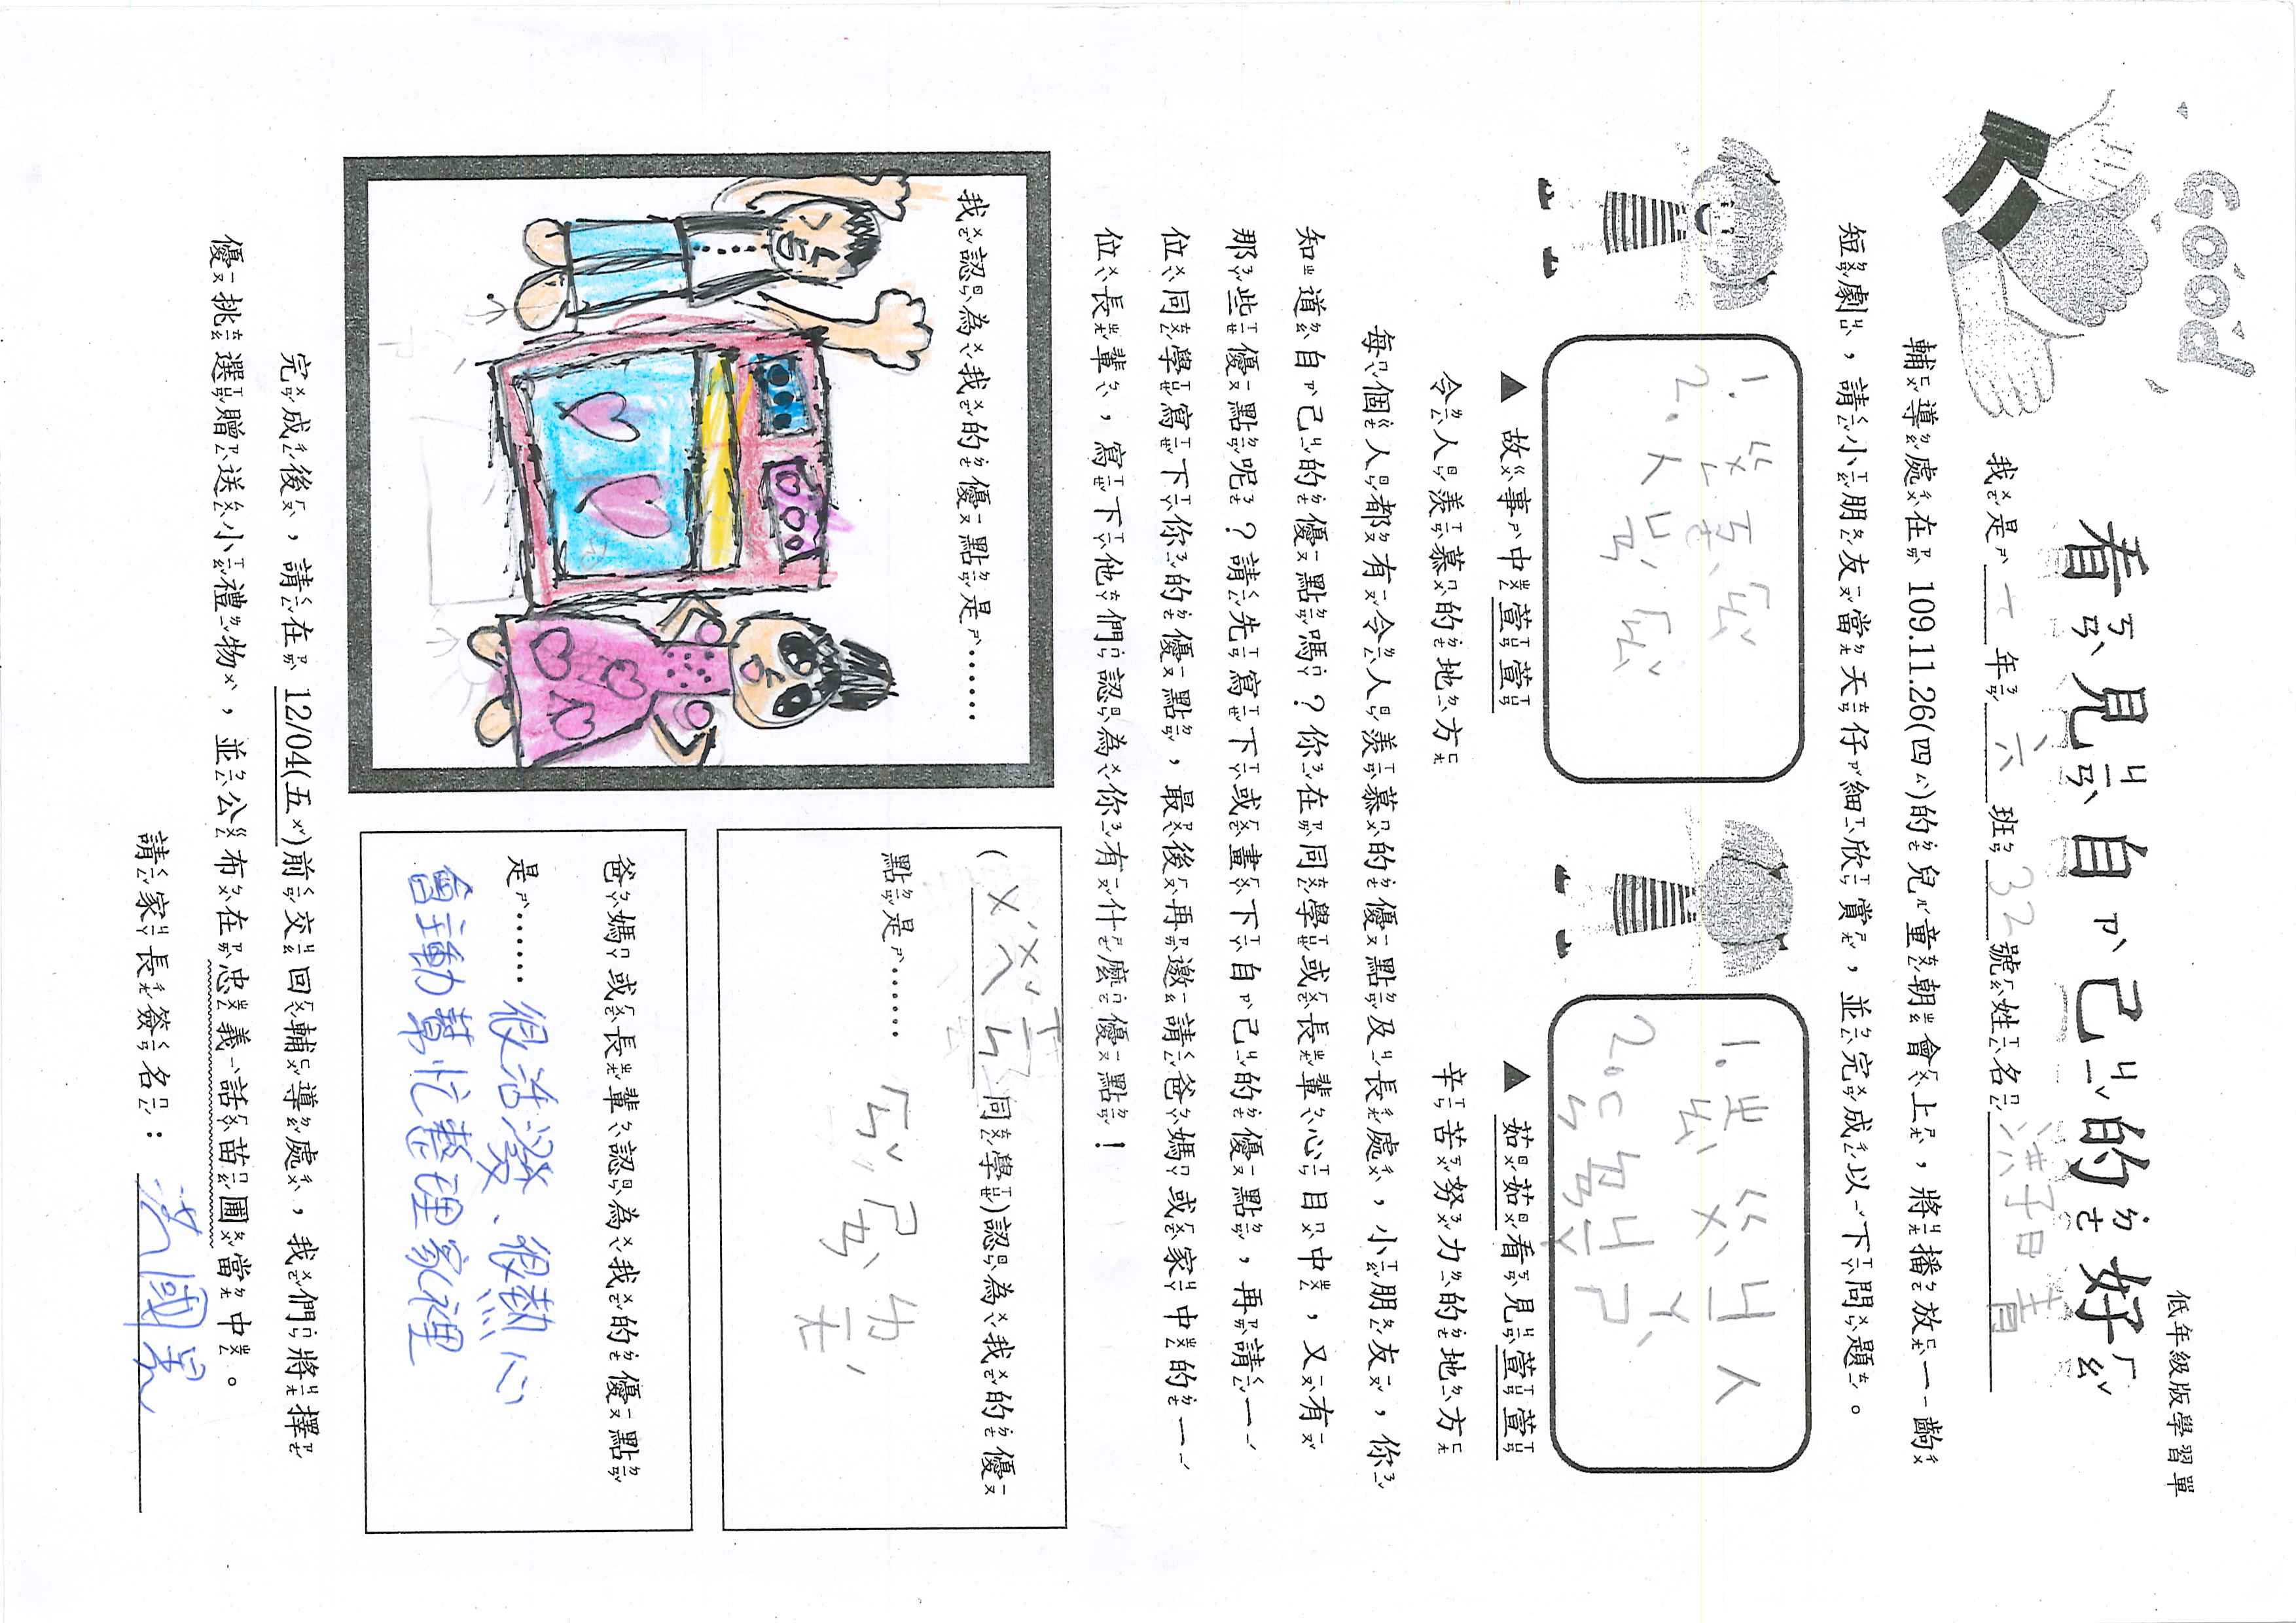 低年級版學習單
GOOD
看見自己的好
我是一年六班32號姓名洪子甯
輔導處在 109.11.26(四)的兒童朝會上，將播放一齣
短劇，請小朋友當天仔細欣賞，並完成以下問題。
1.
2.
▲ 故事中萱萱
令人羨慕的地方
1.
2.
▲ 茹茹看見萱萱
辛苦努力的地方
每個人都有令人羨慕的優點及長處，小朋友，你
知道自己的優點嗎？你在同學或長輩心目中，又有
那些優點呢？請先寫下或畫下自己的優點，再請一
位同學寫下你的優點，最後再邀請爸媽或家中的一
位長輩，寫下他們認為你有什麼優點！
我認為我的優點是……
(同學)認為我的優
點是……
爸媽或長輩認為我的優點
是……很活潑、很熱心
會主動幫忙整理家裡
完成後，請在 12/04(五)前交回輔導處，我們將擇
優挑選贈送小禮物，並公布在忠義話苗圃當中。
請家長簽名：